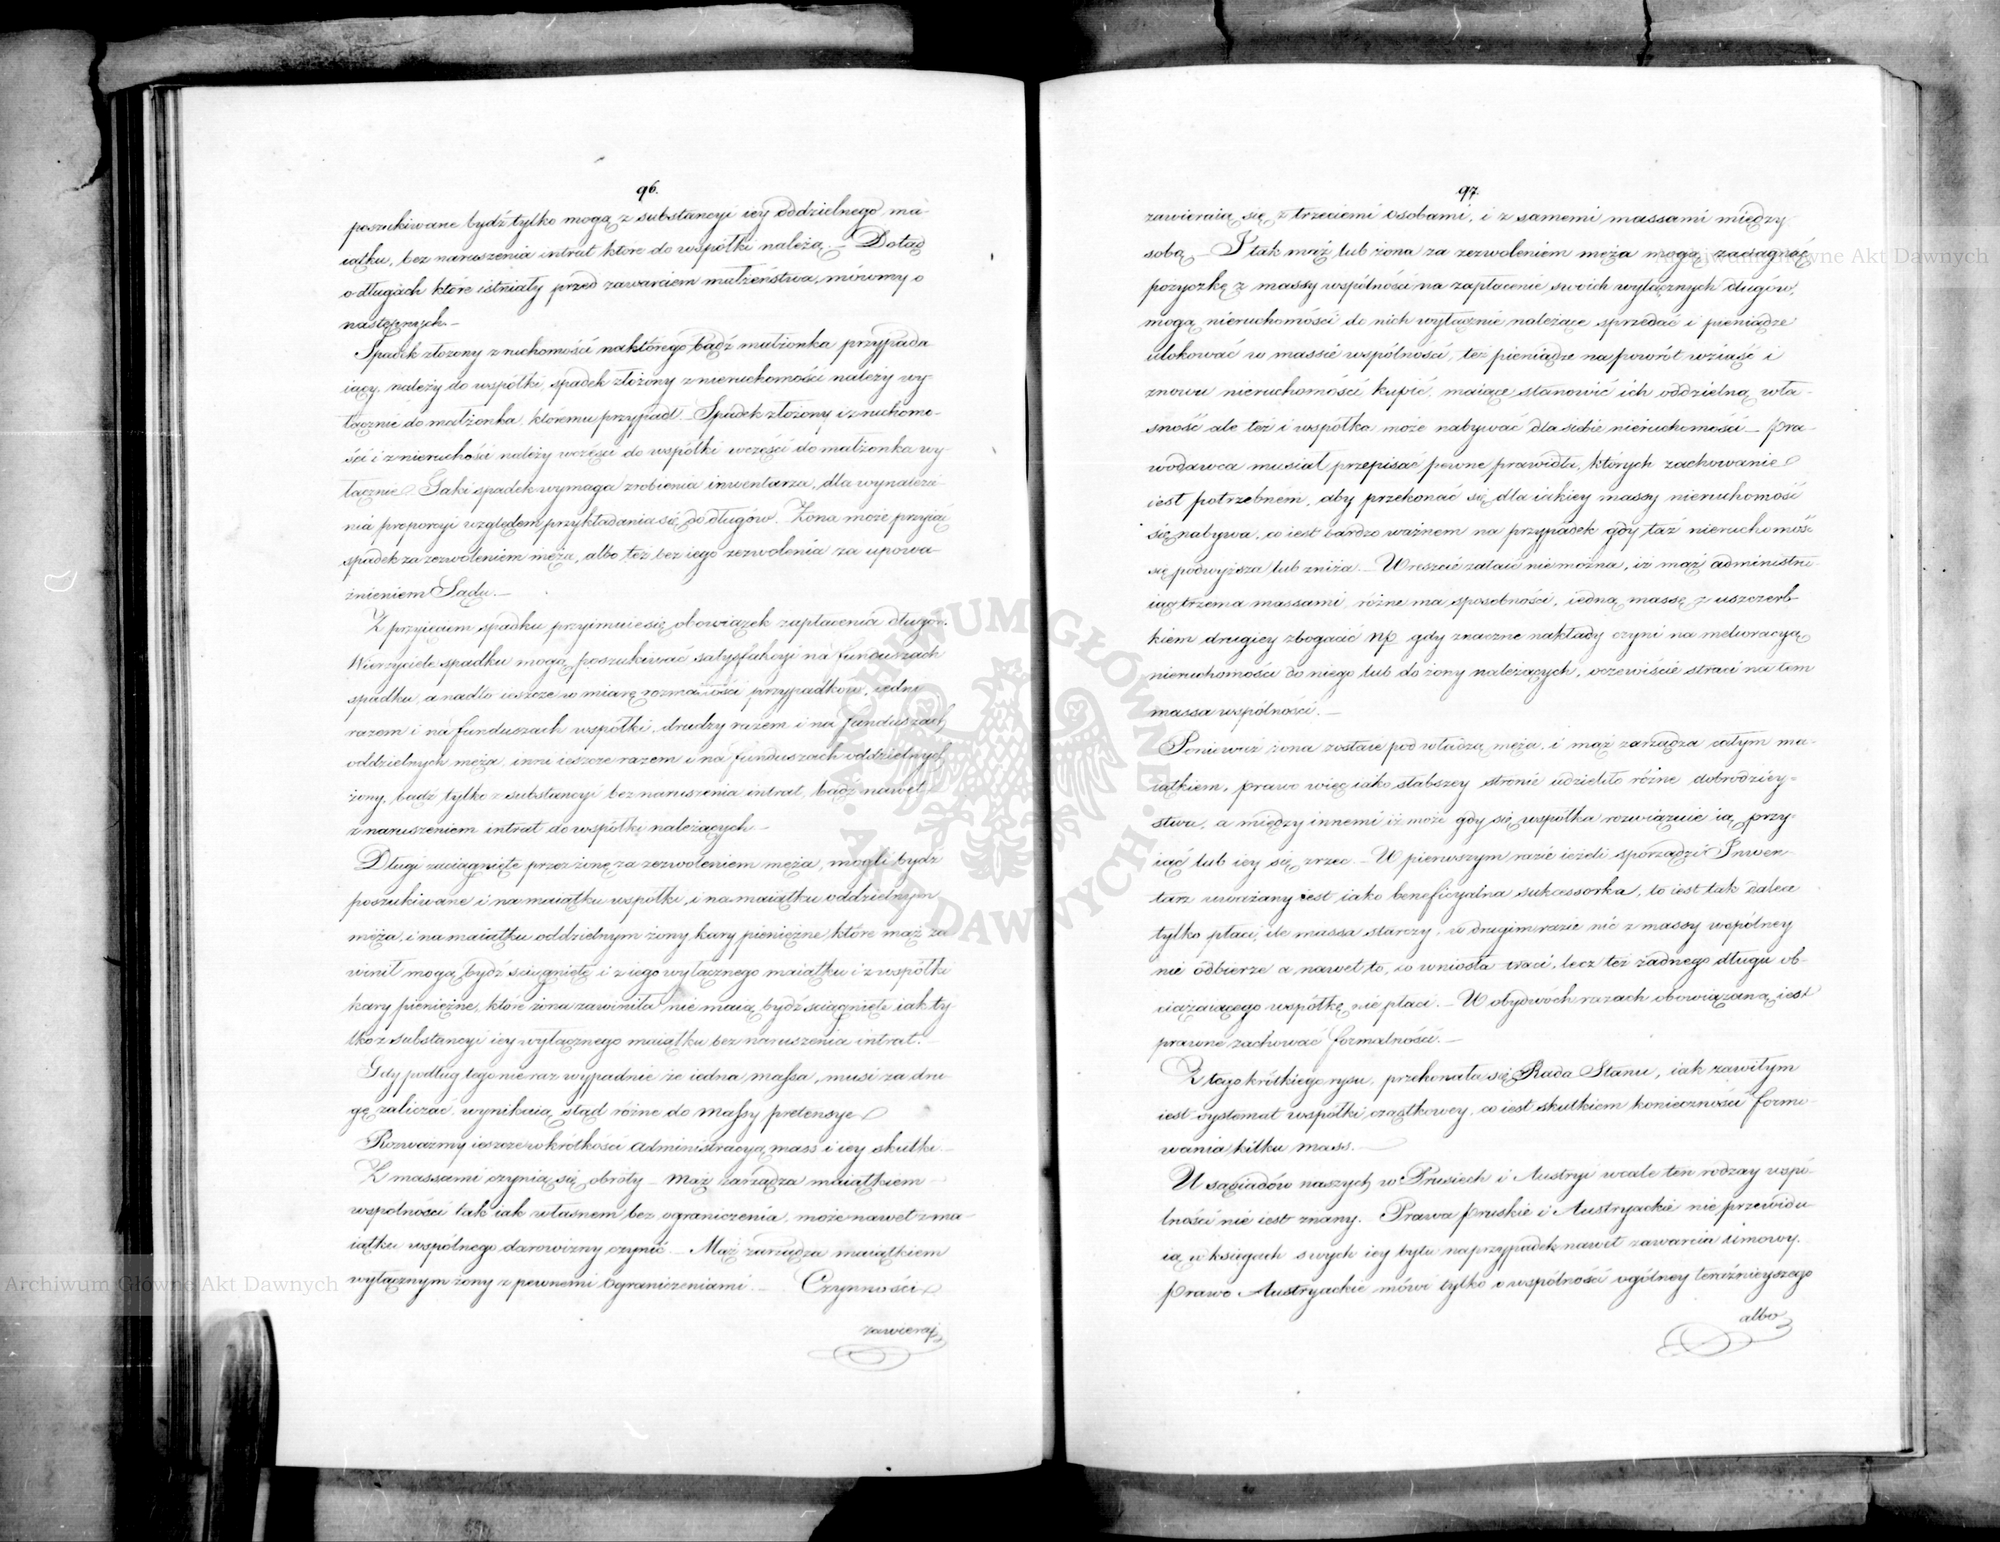 96.
poszukiwane bydź tylko mogą z substancyi iey oddzielnego ma-
iątku, bez naruszenia intrat które do wspólki należą. — Dotąd
o długach które istniały przed zawarciem małżeństwa, mówmy o
następnych. —
Spadek złożony z ruchomości na którego bądź małżonka przypada
iący, należy do wspólki, spadek złożony z nieruchomości należy wy-
łącznie do małżonka, któremu przypadł. Spadek złożony i z ruchomo-
ści i z nieruchości należy w części do wspólki w części do małżonka wy-
łącznie. Taki spadek wymaga zrobienia inwentarza, dla wynalezie-
nia proporcyi względem przykładania się do długów. Żona może przyiąć
spadek za zezwoleniem męża, albo też bez iego zezwolenia za upowa-
żnieniem Sądu. —
Z przyięciem spadku przyimuie się obowiązek zapłacenia długów.
Wierzyciele spadku mogą poszukiwać satysfakcyi na funduszach
spadku, a nadto ieszcze w miarę rozmaitości przypadków, iedni
razem i na funduszach wspólki, drudzy razem i na funduszach
oddzielnych męża, inni ieszcze razem i na funduszach oddzielnych
żony, bądź tylko z substancyi bez naruszenia intrat, bądź nawet
z naruszeniem intrat do wspólki należących. —
Długi zaciągnięte przez żonę za zezwoleniem męża, mogli bydź
poszukiwane i na maiątku wspólki, i na maiątku oddzielnym
męża, i na maiątku oddzielnym żony, kary pieniężne, które mąż za
winił mogą bydź ściągnięte i z iego wyłącznego maiątku i z wspólki
kary pieniężne, które żona zawiniła nie maią bydź ściągnięte iak ty-
lko z substancyi iey wyłącznego maiątku bez naruszenia intrat. —
Gdy podług tego nie raz wypadnie że iedna massa, musi za dru
gę zaliczać, wynikaią stąd różne do massy pretensye
Rozważmy ieszcze w krótkości administracyą mass i iey skutki. —
Z massami czynią się obroty — Mąż zarządza maiątkiem
wspólności tak iak własnem, bez ograniczenia, może nawet z ma
iątku wspólnego darowizny czynić. — Mąż zarządza maiątkiem
wyłącznym żony z pewnemi ograniczeniami. — Czynności
zawieraią
97.
zawieraią się z trzeciemi osobami, i z samemi massami między
sobą. — I tak mąż lub żona za zezwoleniem męża mogą zaciągnąć
pożyczkę z massy wspólności na zapłacenie swoich wyłącznych długów,
mogą nieruchomości do nich wyłącznie należące sprzedać i pieniądze
ulokować w massie wspólności, też pieniądze na powrót wziąść i
znowu nieruchomości kupić, maiące stanowić ich oddzielną wła-
sność ale też i wspólka może nabywać dla siebie nieruchomości — pra-
wodawca musiał przepisać pewne prawidła, których zachowanie
iest potrzebnem, aby przekonać się dla iakiey massy nieruchomość
się nabywa, co iest bardzo ważnem na przypadek gdy taż nieruchomość
się podwyższa lub zniża. — Wreszcie zataić nie można, iż mąż administru
iąc trzema massami, różne ma sposobności, iedną massę z uszczerb
kiem drugiey zbogacić np gdy znaczne nakłady czyni na melioracyą
nieruchomości do niego lub do żony należących, oczewiście straci na tem
massa wspólności. —
Ponieważ żona zostaie pod władzą męża, i mąż zarządza całym ma-
iątkiem, prawo więc iako słabszey stronie udzieliło różne dobrodziey-
stwa, a między innemi iż może gdy się wspólka rozwiązuie ią przy-
iąć lub iey się zrzec. — W pierwszym razie ieżeli sporządzi Inwen
tarz uważany iest iako beneficyalna sukcessorka, to iest tak dalece
tylko płaci, ile massa starczy, w drugim razie nic z massy wspólney
nie odbierze a nawet to, co wniosła traci, lecz też żadnego długu ob-
ciążaiącego wspólkę nie płaci. — W obydwóch razach obowiązaną iest
prawne zachować formalności. —
Z tego krótkiego rysu, przekonała się Rada Stanu, iak zawiłym
iest systemat wspólki cząstkowey, co iest skutkiem konieczności formo-
wania kilku mass. —
U sąsiadów naszych w Prusiech i Austryi wcale ten rodzay wspó-
lności nie iest znany. Prawa pruskie i Austryackie nie przewidu
ią w księgach swych iey bytu na przypadek nawet zawarcia umowy.
Prawo Austryackie mówi tylko o wspólności ogólney teraźnieyszego
albo
Archiwum Główne Akt Dawnych
Archiwum Główne Akt Dawnych
ARCHIWUM GŁÓWNE AKT DAWNYCH